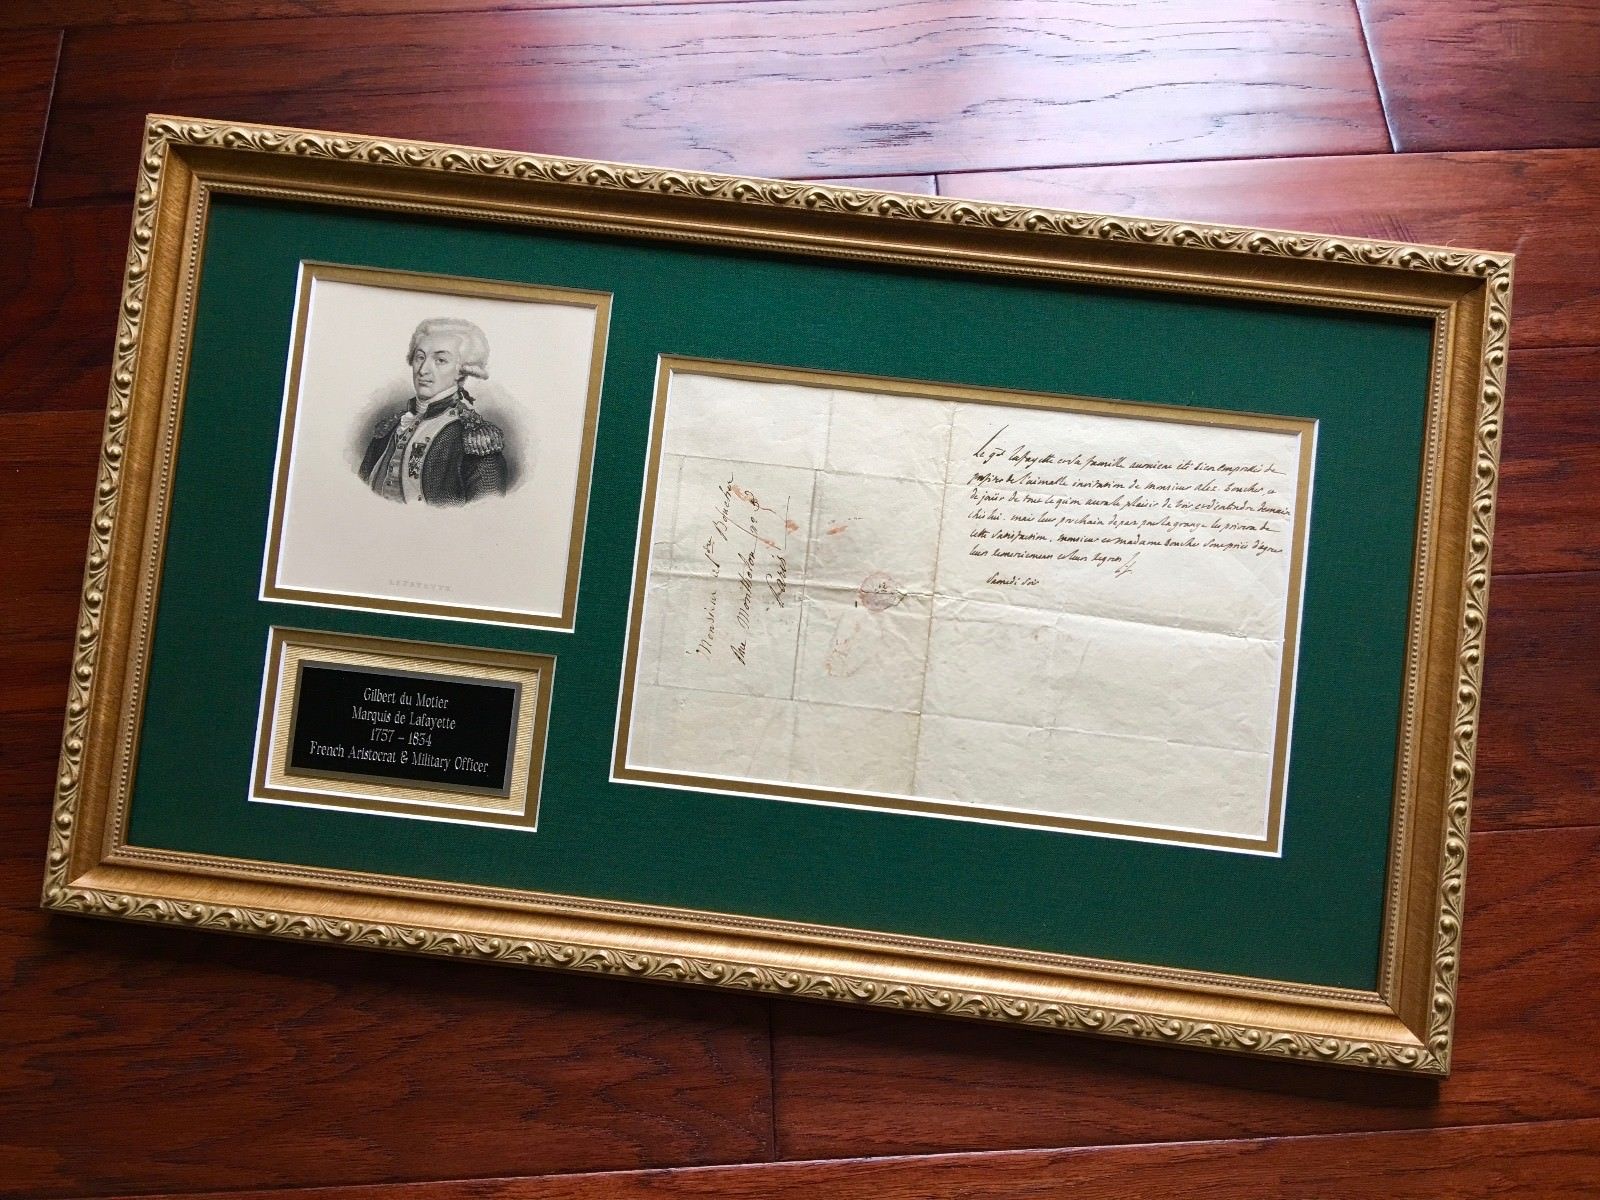 LAFAYETTE
Gilbert du Motier
Marquis de Lafayette
1757 - 1834
French Aristocrat & Military Officer
Monsieur et Boucher
Rue Montholon no
Paris
Le gal Lafayette et sa famille auroient été bien empressés de
profiter de l'aimable invitation de Monsieur alex. Boucher, et
de jouir de tout ce qu'on aura le plaisir de voir et d'entendre demain
chés lui. mais leur prochain depart pour la grange les privera de
cette satisfaction. Monsieur et Madame Boucher sont priés d'agréer
leurs remerciemens et leurs regrets
Samedi soir